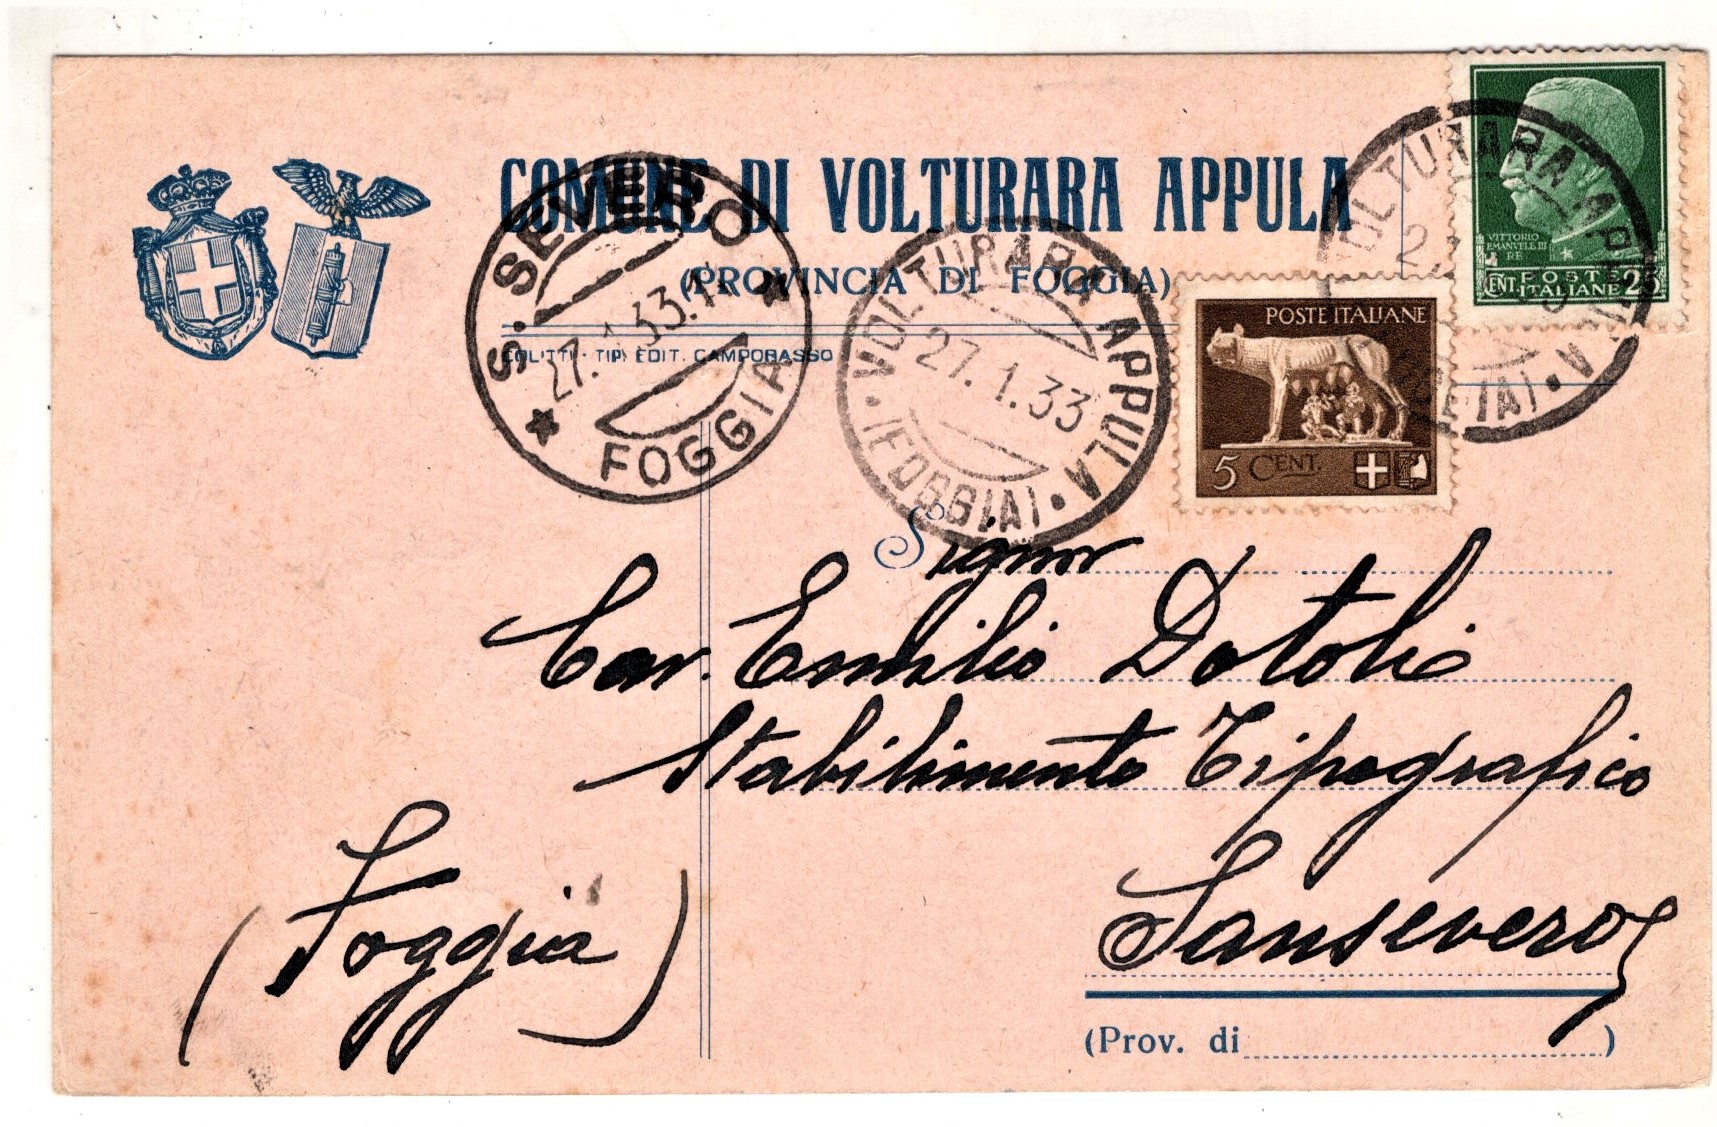 COMUNE DI VOLTURARA APPULA
(PROVINCIA DI FOGGIA)
COLITTI - TIP. EDIT. CAMPOBASSO
S. SEVERO
27. 1. 33.
FOGGIA
VOLTURARA APPULA
27. 1. 33
(FOGGIA)
VOLTURARA APPULA
VITTORIO
EMANVELE III
RE
POSTE
CENT. ITALIANE 25
POSTE ITALIANE
5 CENT.
Signor
Cav. Emilio Dotoli
Stabilimento Tipografico
Sansevero
(Foggia)
(Prov. di )